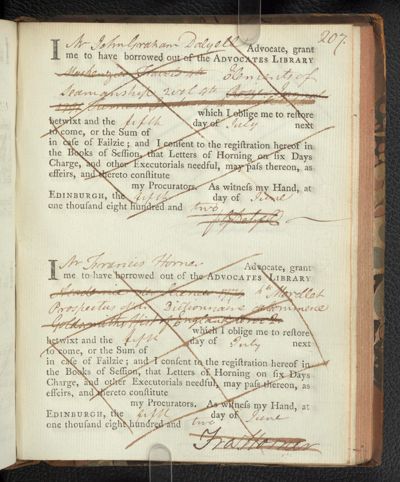 207.
I Mr John Graham Dalyell Advocate, grant
me to have borrowed out of the ADVOCATES LIBRARY
Elements of
Seamanship 2 vol 4to
which I oblige me to restore
betwixt and the fifth day of July next
to come, or the Sum of
in case of Failzie; and I consent to the registration hereof in
the Books of Session, that Letters of Horning on six Days
Charge, and other Executorials needful, may pass thereon, as
effeirs, and thereto constitute
my Procurators. As witness my Hand, at
EDINBURGH, the fifth day of June
one thousand eight hundred and two
J G Dalyell
I Mr Francis Horner Advocate, grant
me to have borrowed out of the ADVOCATES LIBRARY
Morellet
Prospectus d'un Dictionnaire de Commerce
which I oblige me to restore
betwixt and the fifth day of July next
to come, or the Sum of
in case of Failzie; and I consent to the registration hereof in
the Books of Session, that Letters of Horning on six Days
Charge, and other Executorials needful, may pass thereon, as
effeirs, and thereto constitute
my Procurators. As witness my Hand, at
EDINBURGH, the fifth day of June
one thousand eight hundred and two
Fra Horner